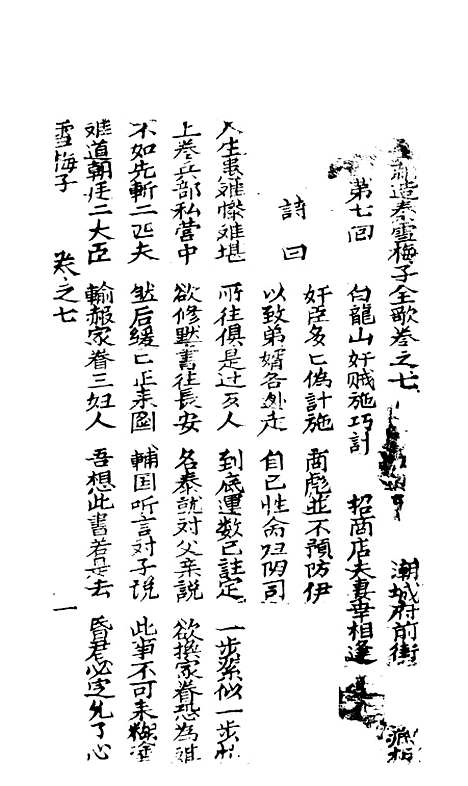 造秦雪梅子全歌卷之七 潮城府前街
第七回 白龍山奸賊施巧計 招商店夫妻幸相逢
詩曰 奸臣多匕偽計施 商彪並不預防伊
以致弟婿各逃走 自己性命归阴司
人生患难惨难堪 所往俱是过歹人 到底運数已註定 一步紧似一步
上卷兵部私营中 欲修黙書往長安 名泰就对父亲說 欲换家眷恐为难
不如先斬二匹夫 然后緩匕正来圖 輔国听言对子說 此事不可来糊塗
难道朝廷二大臣 輸赧家眷三妇人 吾想此書若是去 昏君必定允了心
雪梅子 卷之七 一